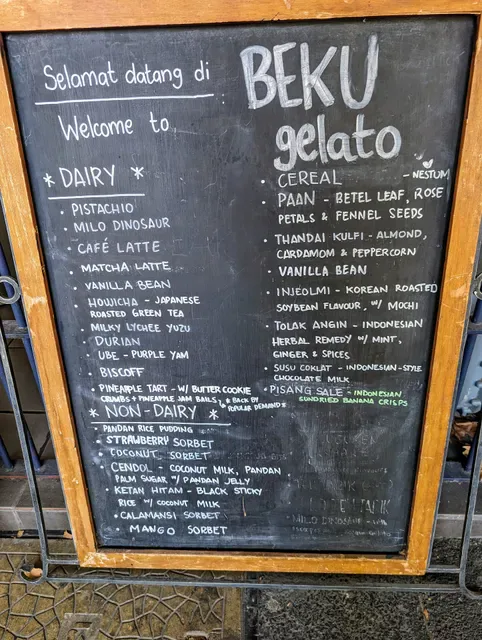 Selamat datang di
BEKU
Welcome to
gelato
* DAIRY *
• PISTACHIO
• MILO DINOSAUR
• CAFÉ LATTE
• MATCHA LATTE
• VANILLA BEAN
• HOUJICHA - JAPANESE
ROASTED GREEN TEA
• MILKY LYCHEE YUZU
• DURIAN
• UBE - PURPLE YAM
• BISCOFF
• PINEAPPLE TART - W/ BUTTER COOKIE
CRUMBS + PINEAPPLE JAM BALLS
* BACK BY
POPULAR DEMAND *
* NON-DAIRY *
• PANDAN RICE PUDDING
• STRAWBERRY SORBET
• COCONUT SORBET
• CENDOL - COCONUT MILK, PANDAN
PALM SUGAR W/ PANDAN JELLY
• KETAN HITAM - BLACK STICKY
RICE W/ COCONUT MILK
• CALAMANSI SORBET
• MANGO SORBET
• CEREAL - NESTUM
• PAAN - BETEL LEAF, ROSE
PETALS & FENNEL SEEDS
• THANDAI KULFI - ALMOND,
CARDAMOM & PEPPERCORN
• VANILLA BEAN
• INJEOLMI - KOREAN ROASTED
SOYBEAN FLAVOUR, W/ MOCHI
• TOLAK ANGIN - INDONESIAN
HERBAL REMEDY W/ MINT,
GINGER & SPICES
• SUSU COKLAT - INDONESIAN-STYLE
CHOCOLATE MILK
• PISANG SALE - INDONESIAN
SUNDRIED BANANA CRISPS
MILO DINOSAUR